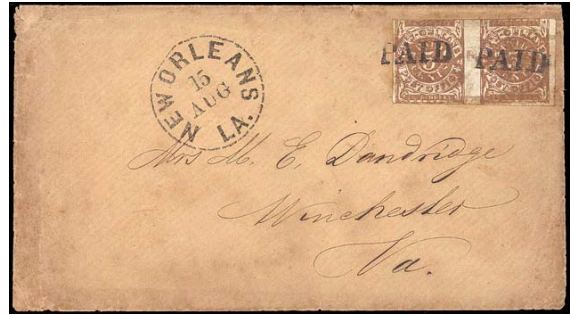 NEW ORLEANS
15
AUG
LA.
PAID PAID
Mrs M. E. Dandridge
Winchester
Va.